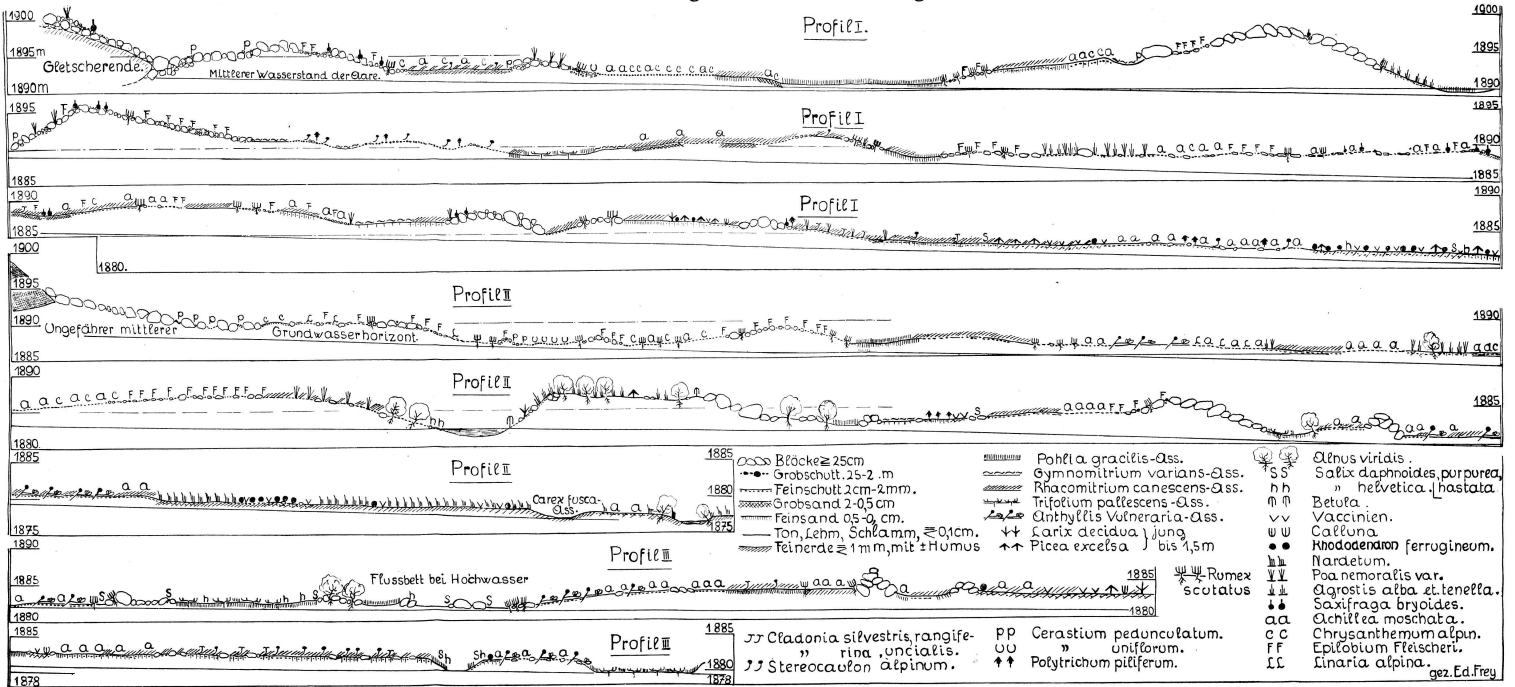 Profil I.
1900
1895m
1890m
Gletscherende.
Mittlerer Wasserstand der Aare.
1900
1895
1890
Profil I
1895
1890
1885
1895
1890
1885
Profil I
1890
1885
1880.
1890
1885
1880
Profil II
1900
1895
1890
1885
Ungefährer mittlerer Grundwasserhorizont.
1890
1885
Profil II
1890
1885
1880
1885
Profil II
1885
1880
1875
Carex fusca-
Ass.
1885
1880
1875
Profil III
1890
1885
1880
Flussbett bei Hochwasser
1885
1880
Profil III
1885
1880
1878
1885
1880
1878
Blöcke ≧ 25cm
Grobschutt. 25-2 .m
Feinschutt 2cm-2mm.
Grobsand 2-0,5 cm.
Feinsand 0,5-0, cm.
Ton, Lehm, Schlamm, ≦0,1cm.
Feinerde ≦ 1mm, mit ± Humus
Pohlia gracilis-Ass.
Gymnomitrium varians-Ass.
Rhacomitrium canescens-Ass.
Trifolium pallescens-Ass.
Anthyllis Vulneraria-Ass.
Larix decidua } jung
Picea excelsa } bis 1,5m
Rumex
scutatus
Alnus viridis.
SS Salix daphnoides, purpurea,
hh " helvetica. hastata
Betula.
vv Vaccinien.
Calluna
Rhododendron ferrugineum.
Nardetum.
Poa nemoralis var.
Agrostis alba et. tenella.
Saxifraga bryoides.
aa Achillea moschata.
cc Chrysanthemum alpin.
FF Epilobium Fleischeri.
LL Linaria alpina.
JJ Cladonia silvestris, rangife-
" rina, uncialis.
Stereocaulon alpinum.
PP Cerastium pedunculatum.
UU " uniflorum.
Polytrichum piliferum.
gez. Ed. Frey